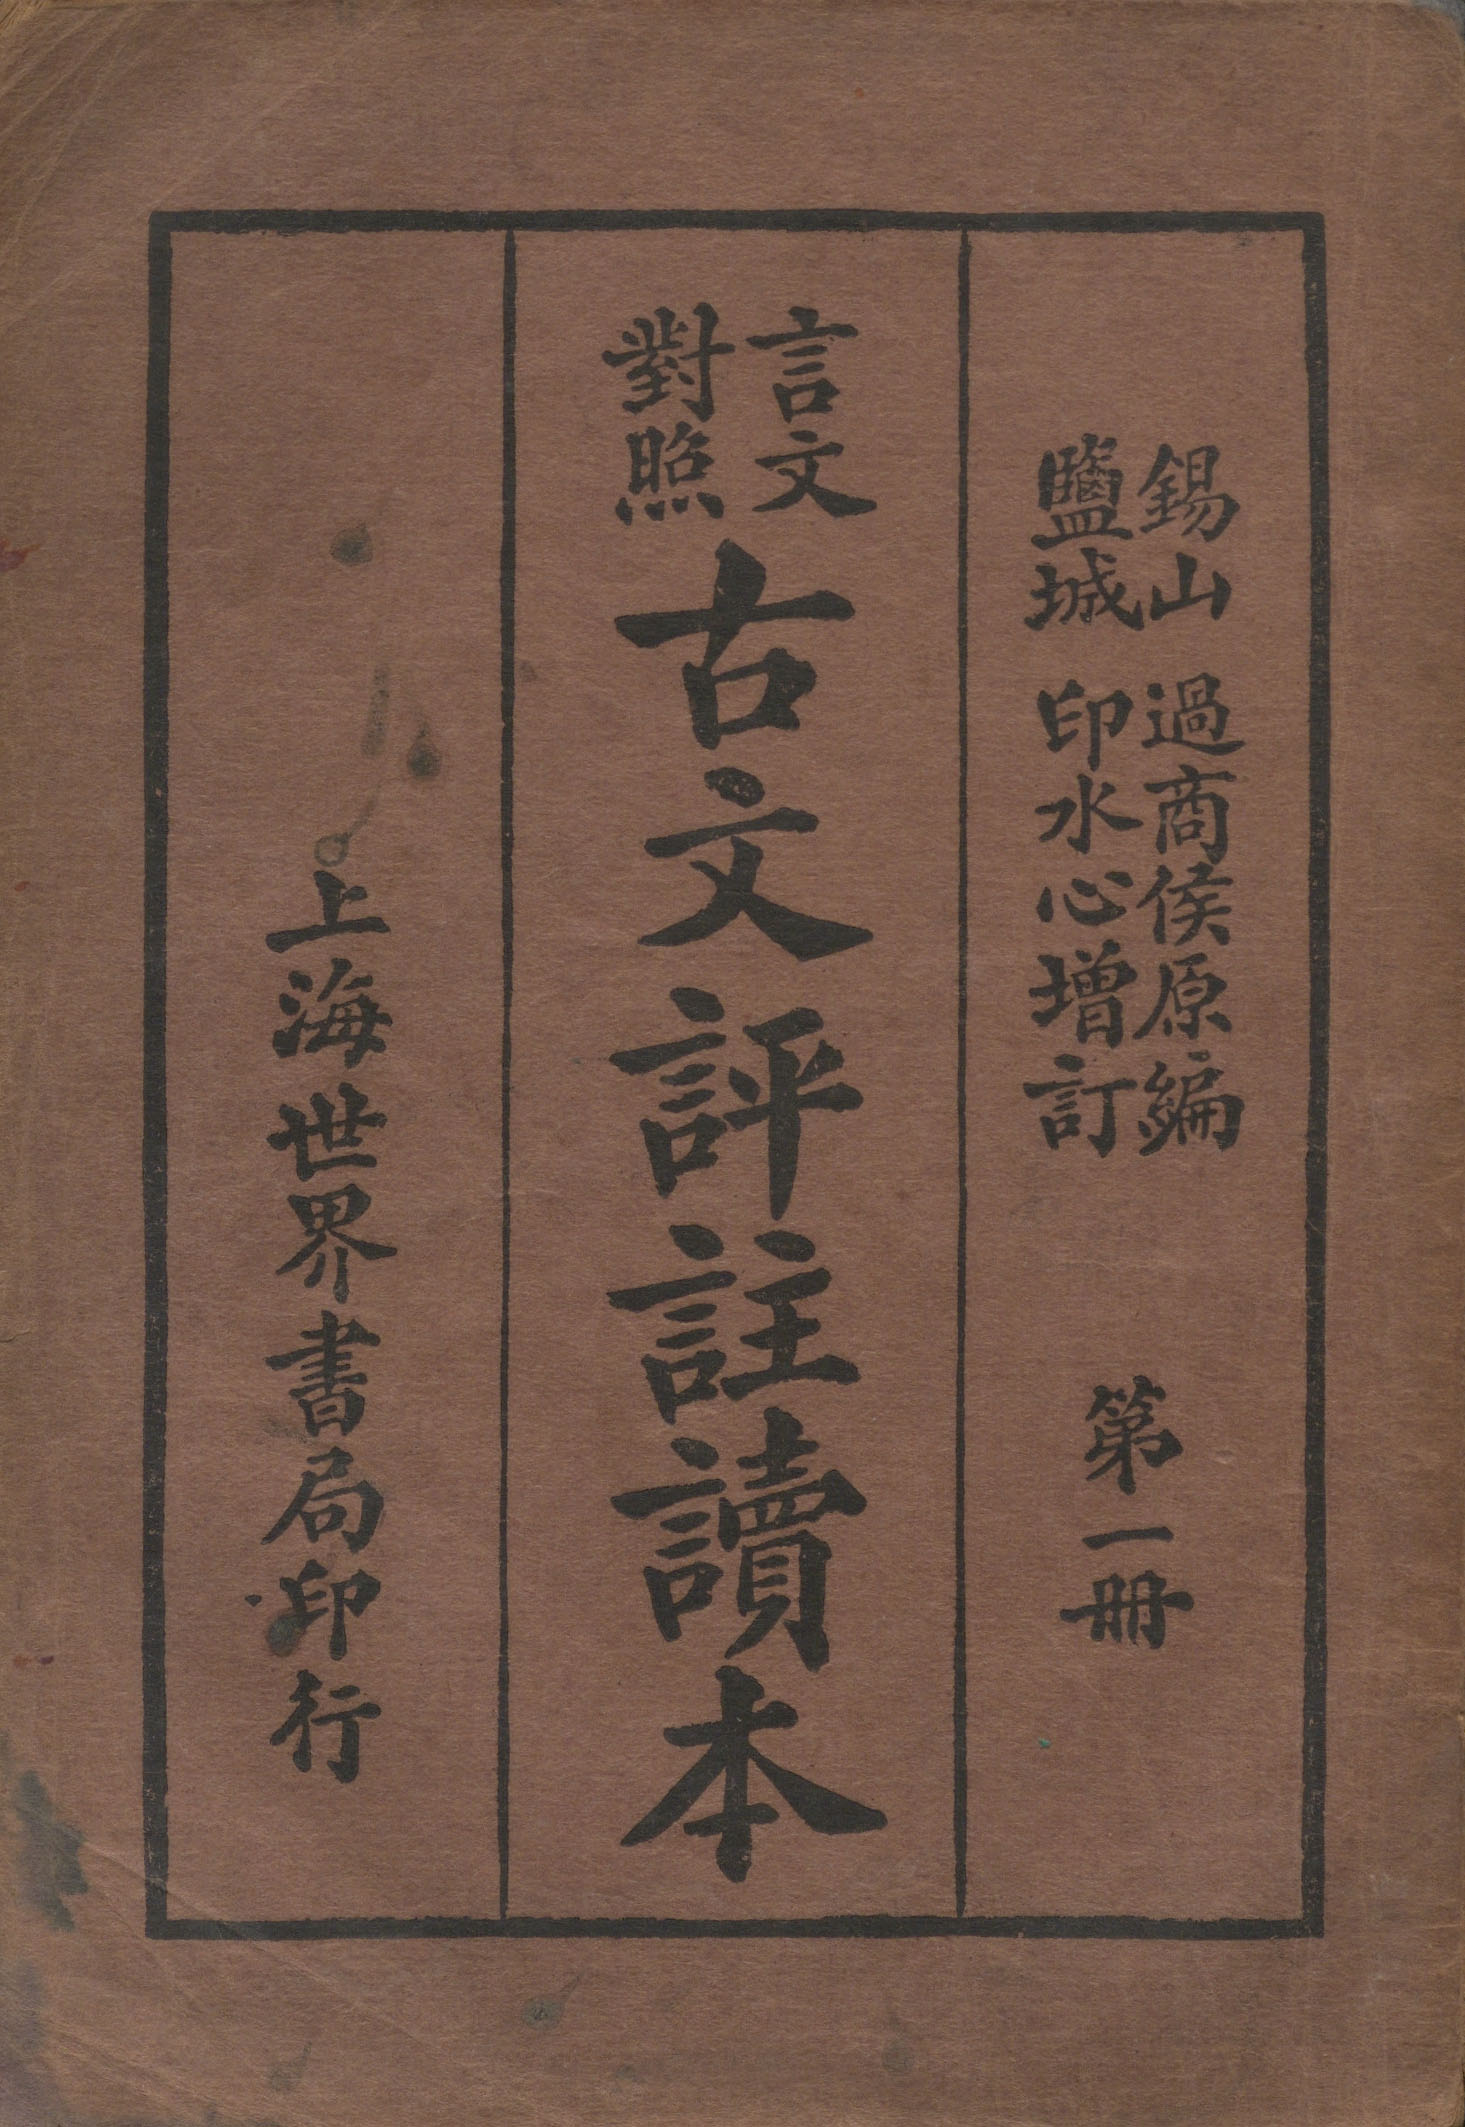 錫山 過商侯原編
鹽城 印水心增訂
第一冊
言文
對照
古文評註讀本
上海世界書局印行